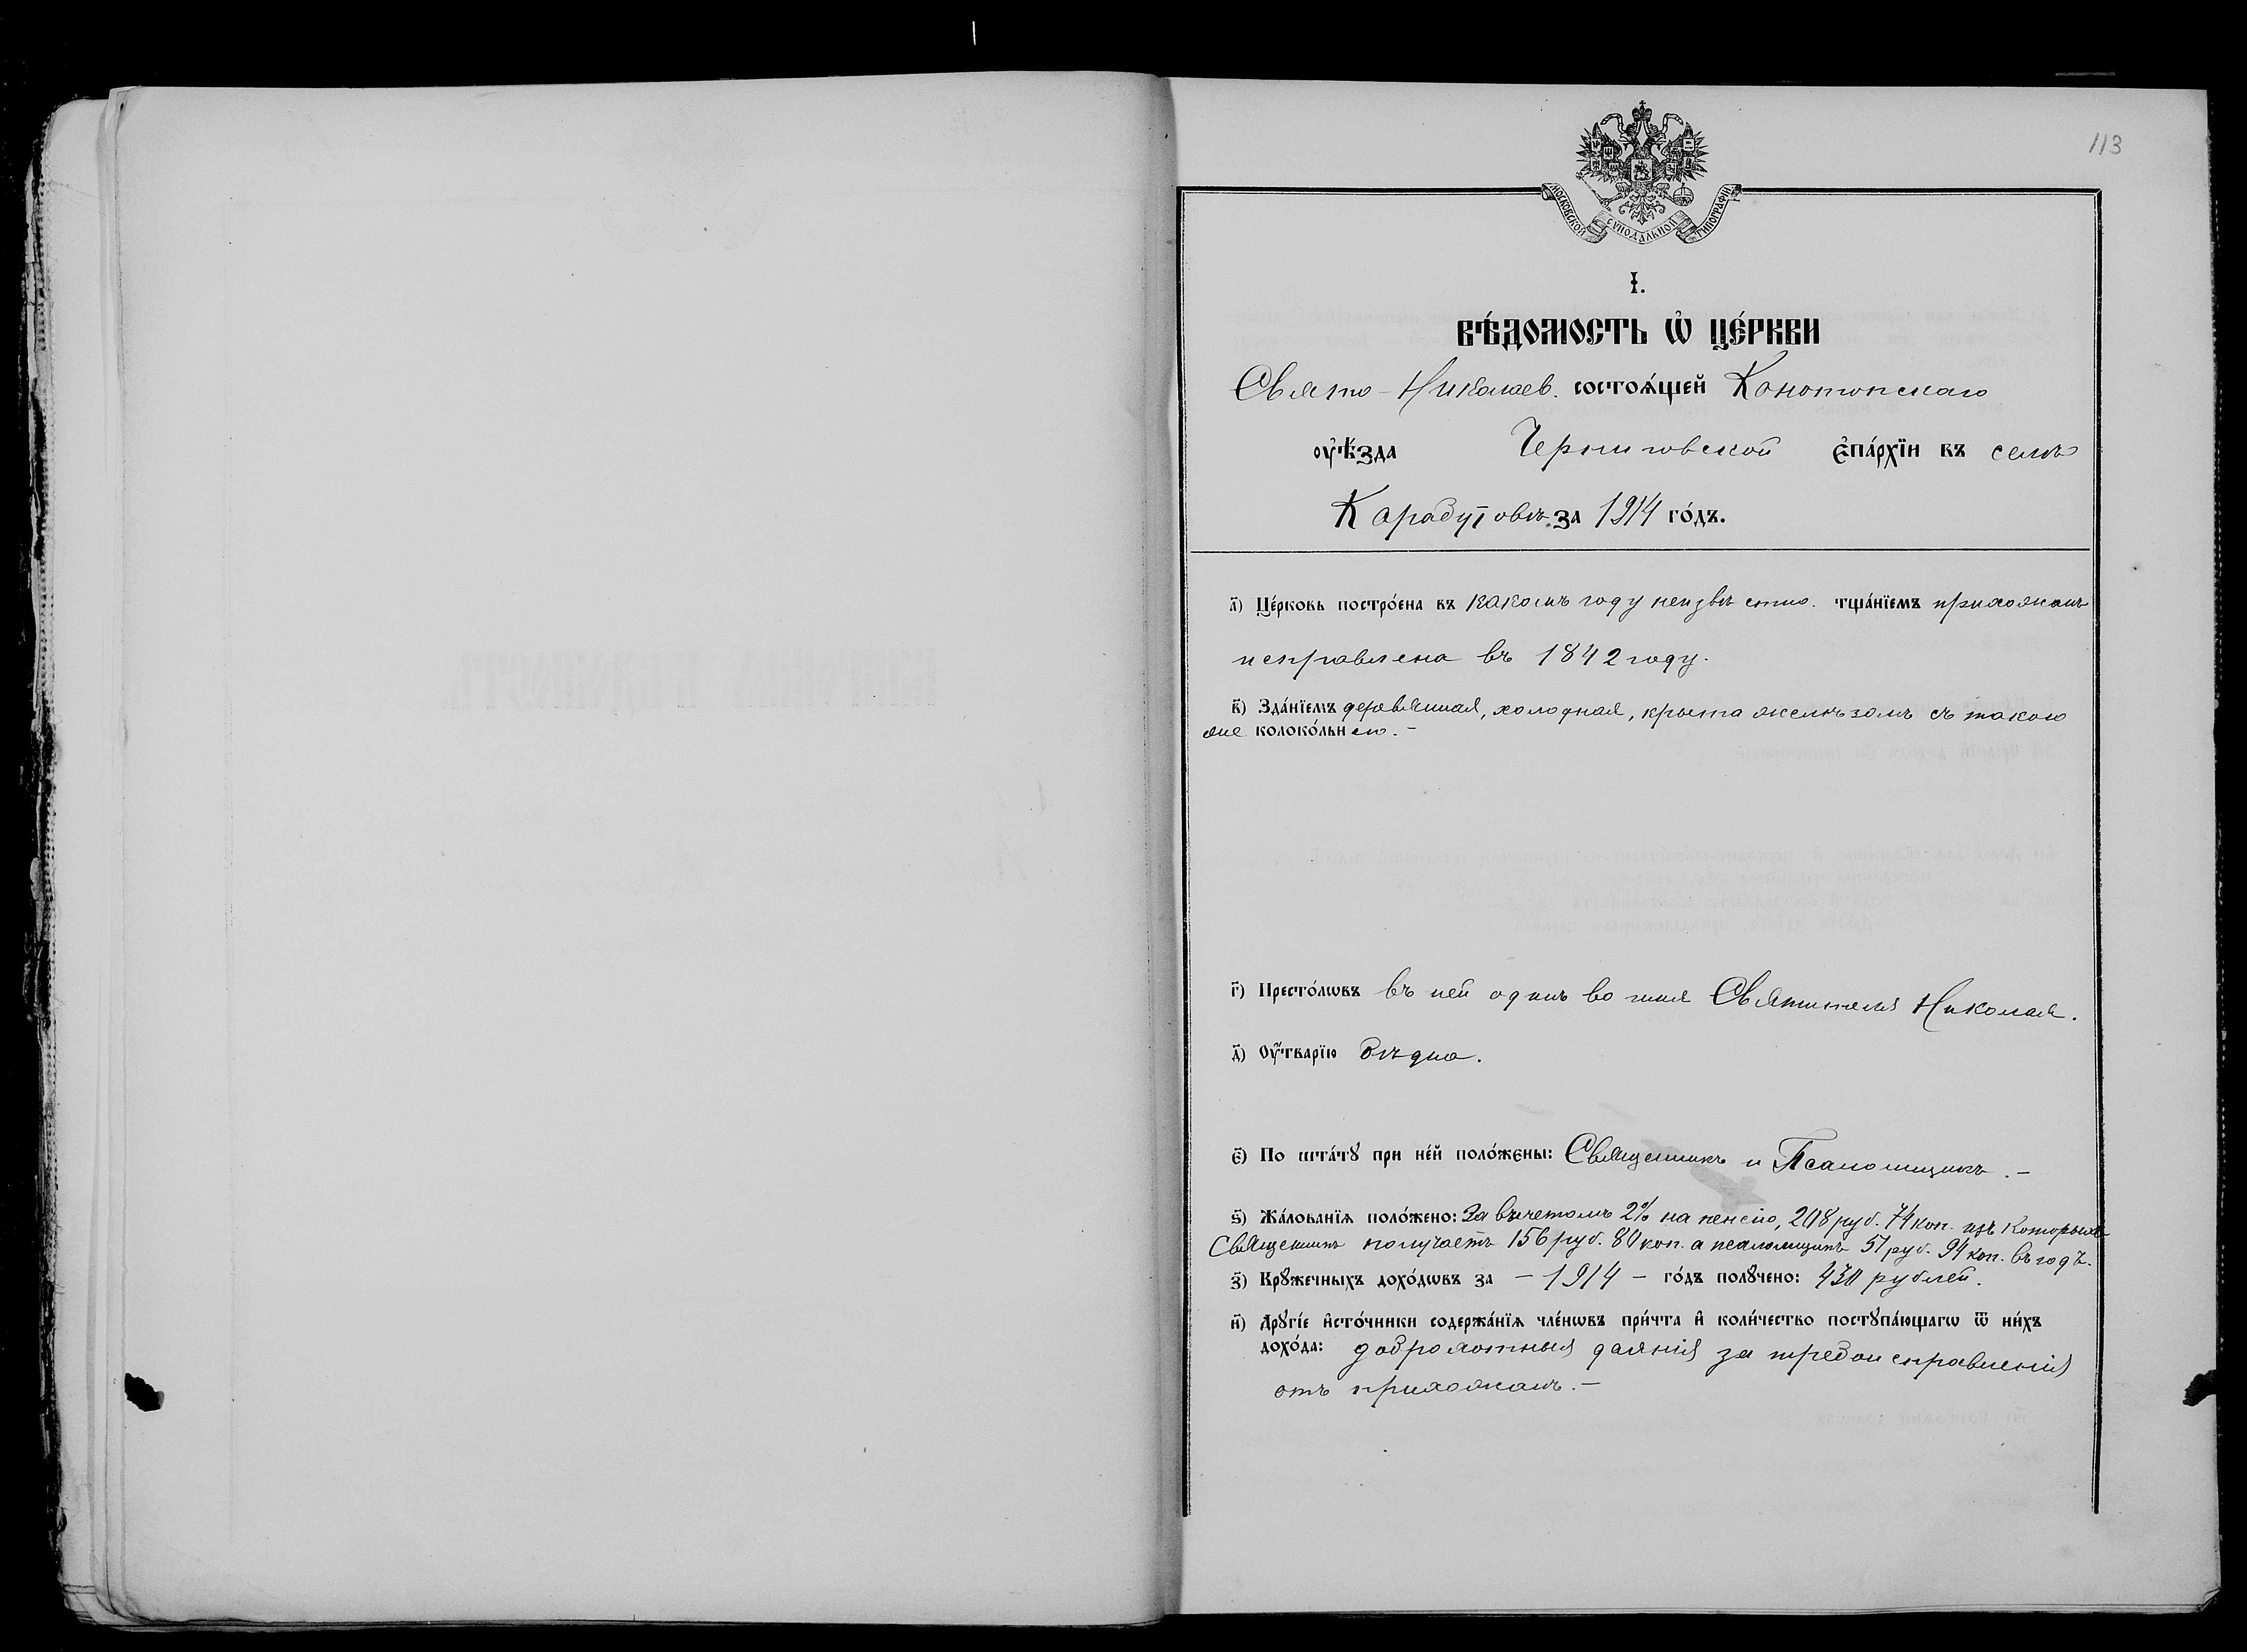 113
МОСКОВСКОЙ СѴНОДАЛЬНОЙ ТИПОГРАФІИ
І.
ВѢ́ДОМОСТЬ Ѡ҆ ЦЕ́РКВИ
Свято-Николаев. состоѧ́щей Конотопскаго
оу҆ѣ́зда Черниговской є҆па́рхїи въ селѣ
Карабутовѣ за 1914 го́дъ.
а҃) Це́рковь постро́ена въ какомъ году неизвѣстно. тща́нїемъ прихожанъ
исправлена въ 1842 году.
в҃) Зда́нїемъ деревянная, холодная, крыта желѣзомъ съ такою
же колоко́льнею. –
г҃) Престо́лѡвъ въ ней одинъ во имя Святителя Николая.
д҃) Оу҆́тварїю бѣдна.
є҃) По шта́тꙋ при не́й поло́жены: Священникъ и Псаломщикъ. –
ѕ҃) Жа́лованїѧ поло́жено: За вычетомъ 2% на пенсію, 208 руб. 74 коп. изъ которыхъ
Священникъ получаетъ 156 руб. 80 коп. а псаломщикъ 51 руб. 94 коп. въ годъ.
з҃) Крꙋ́жечныхъ дохо́дѡвъ за – 1914 – го́дъ полꙋ́чено: 430 рублей.
и҃) Дрꙋгі́е и҆сто́чники содержа́нїѧ чле́нѡвъ при́чта и҆ коли́чество постꙋпа́ющагѡ ѿ ни́хъ
дохо́да: доброхотныя даянія за требоисправленія
отъ прихожанъ. –